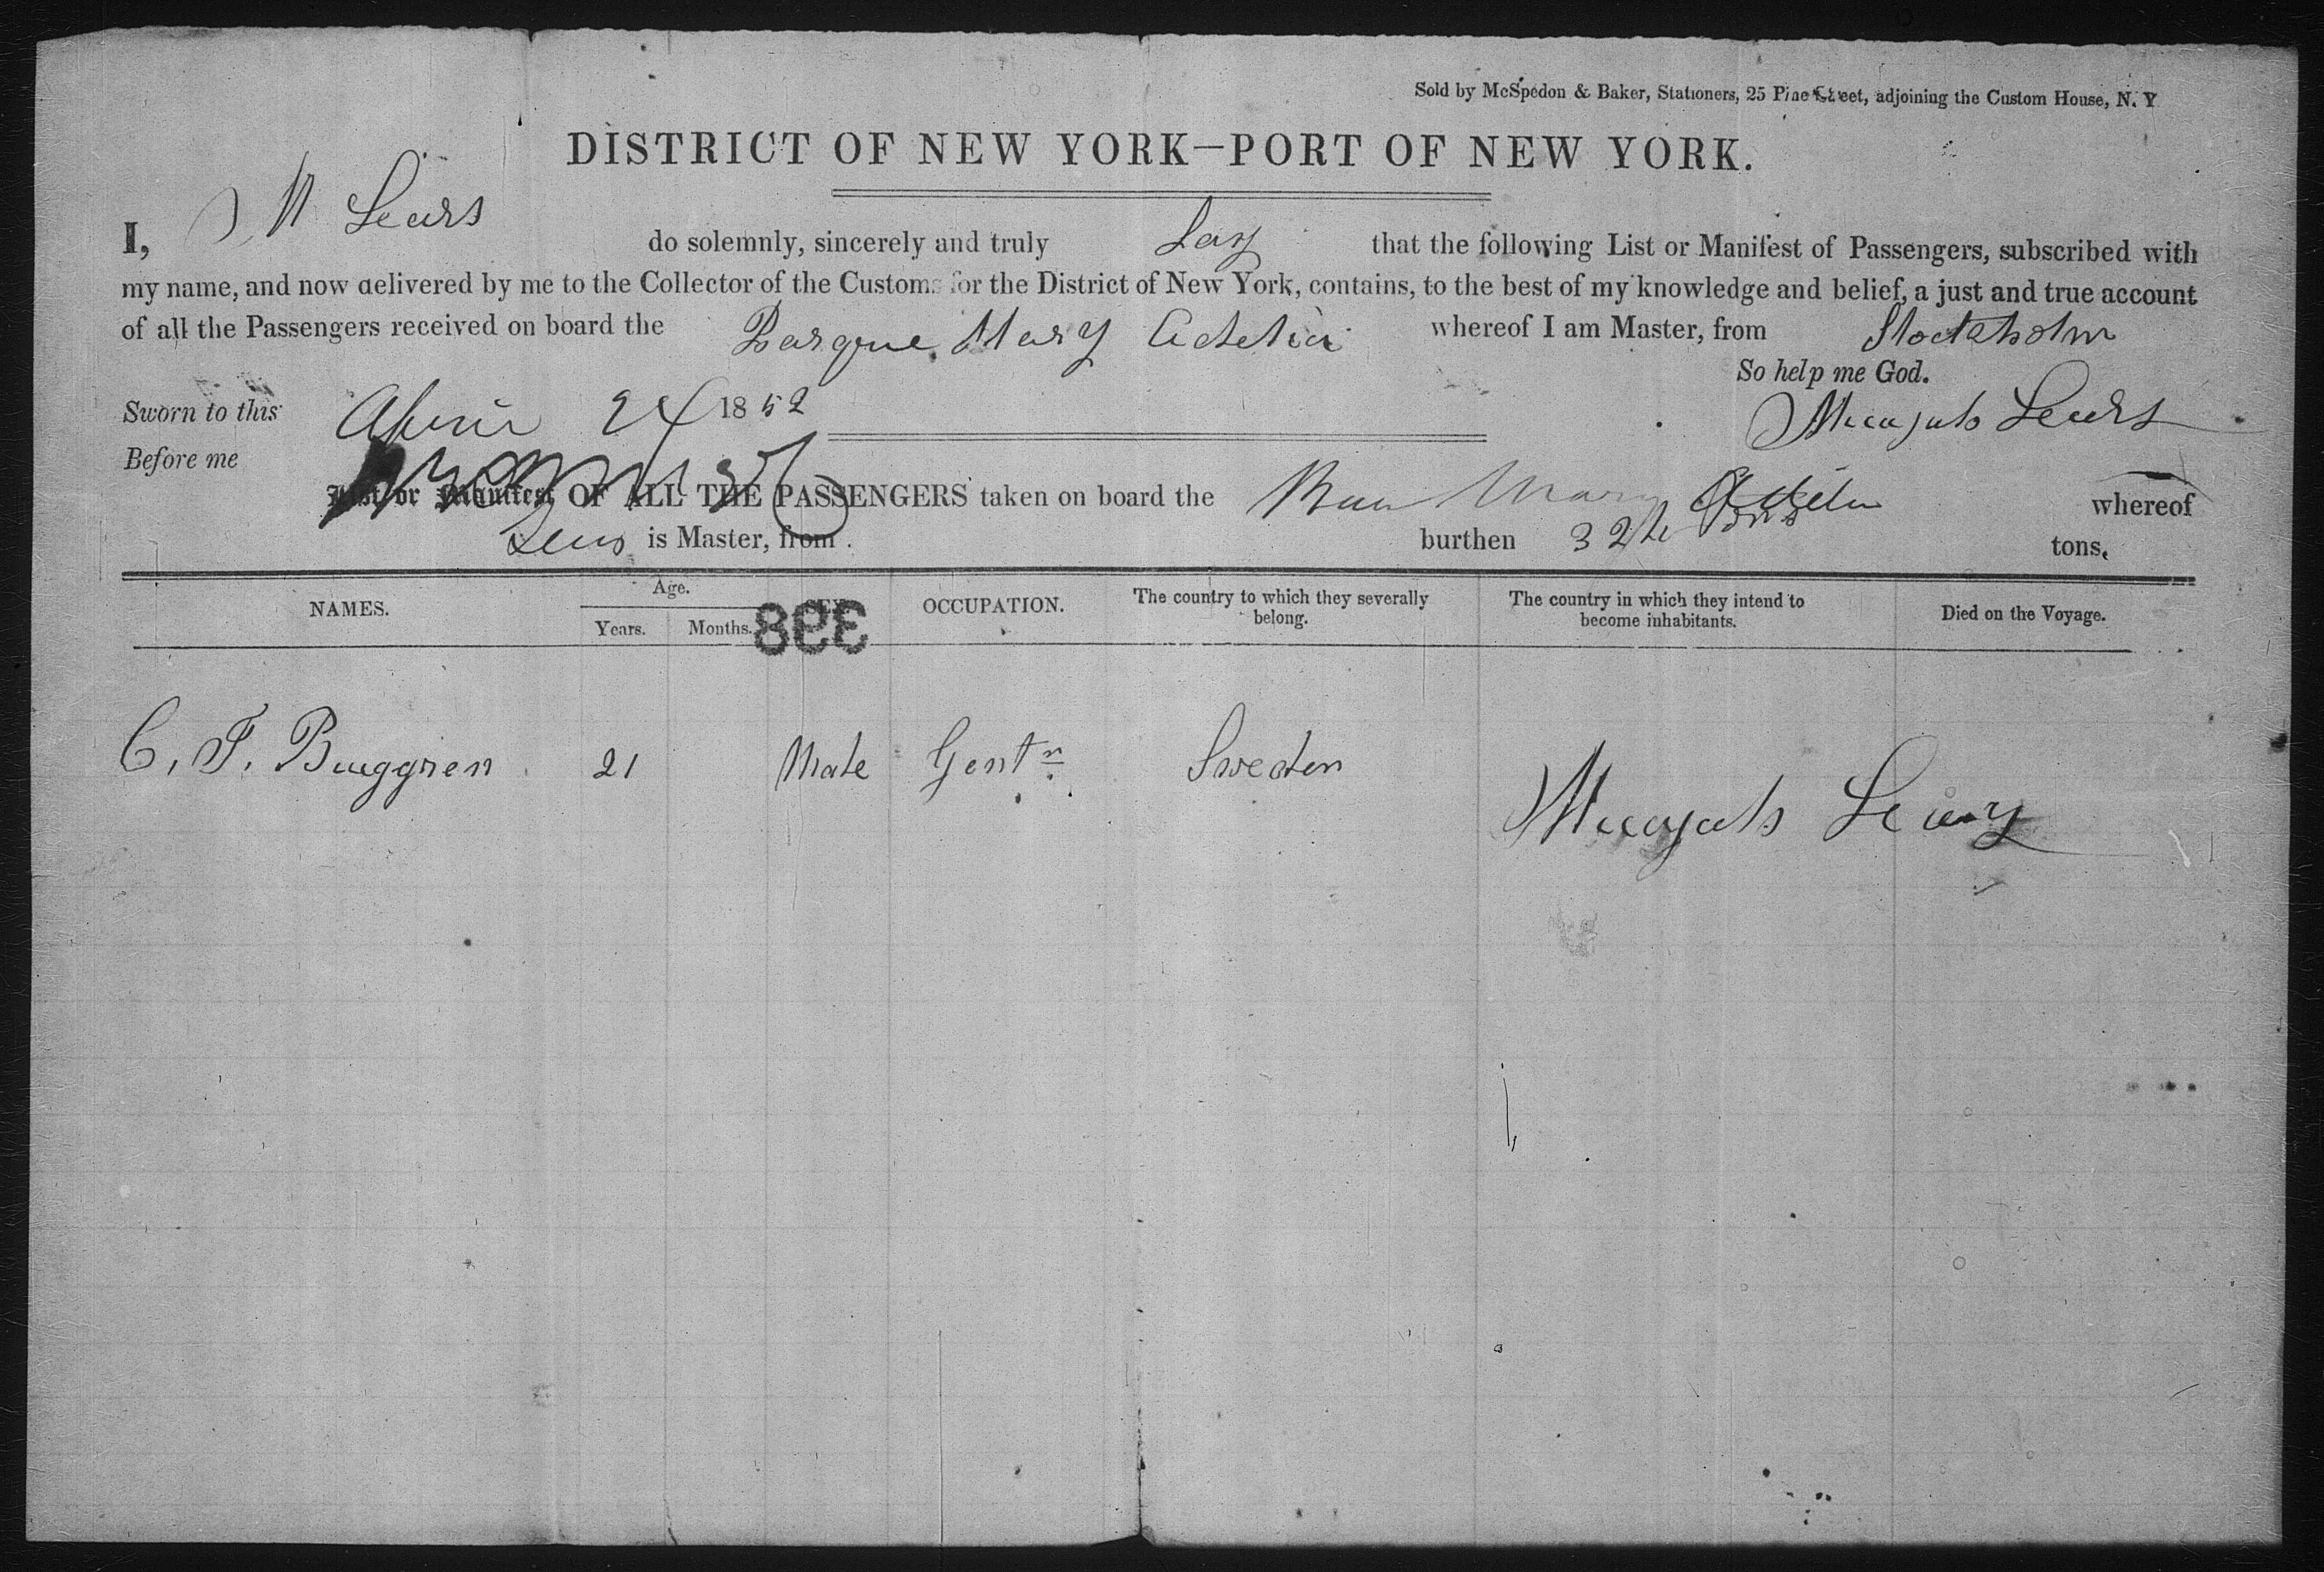 Sold by McSpedon & Baker, Stationers, 25 Pine Street, adjoining the Custom House, N. Y
DISTRICT OF NEW YORK—PORT OF NEW YORK.
I, M Lewis do solemnly, sincerely and truly Say that the following List or Manifest of Passengers, subscribed with
my name, and now delivered by me to the Collector of the Customs for the District of New York, contains, to the best of my knowledge and belief, a just and true account
of all the Passengers received on board the Barque Mary Adelia whereof I am Master, from Stockholm
So help me God.
Sworn to this April 1852
Before me
List or Manifest OF ALL THE PASSENGERS taken on board the Mary whereof
is Master, from burthen tons.
NAMES. Age. Years. Months. SEX OCCUPATION. The country to which they severally belong. The country in which they intend to become inhabitants. Died on the Voyage.
398
C. F. 21 Male Gentn Sweden